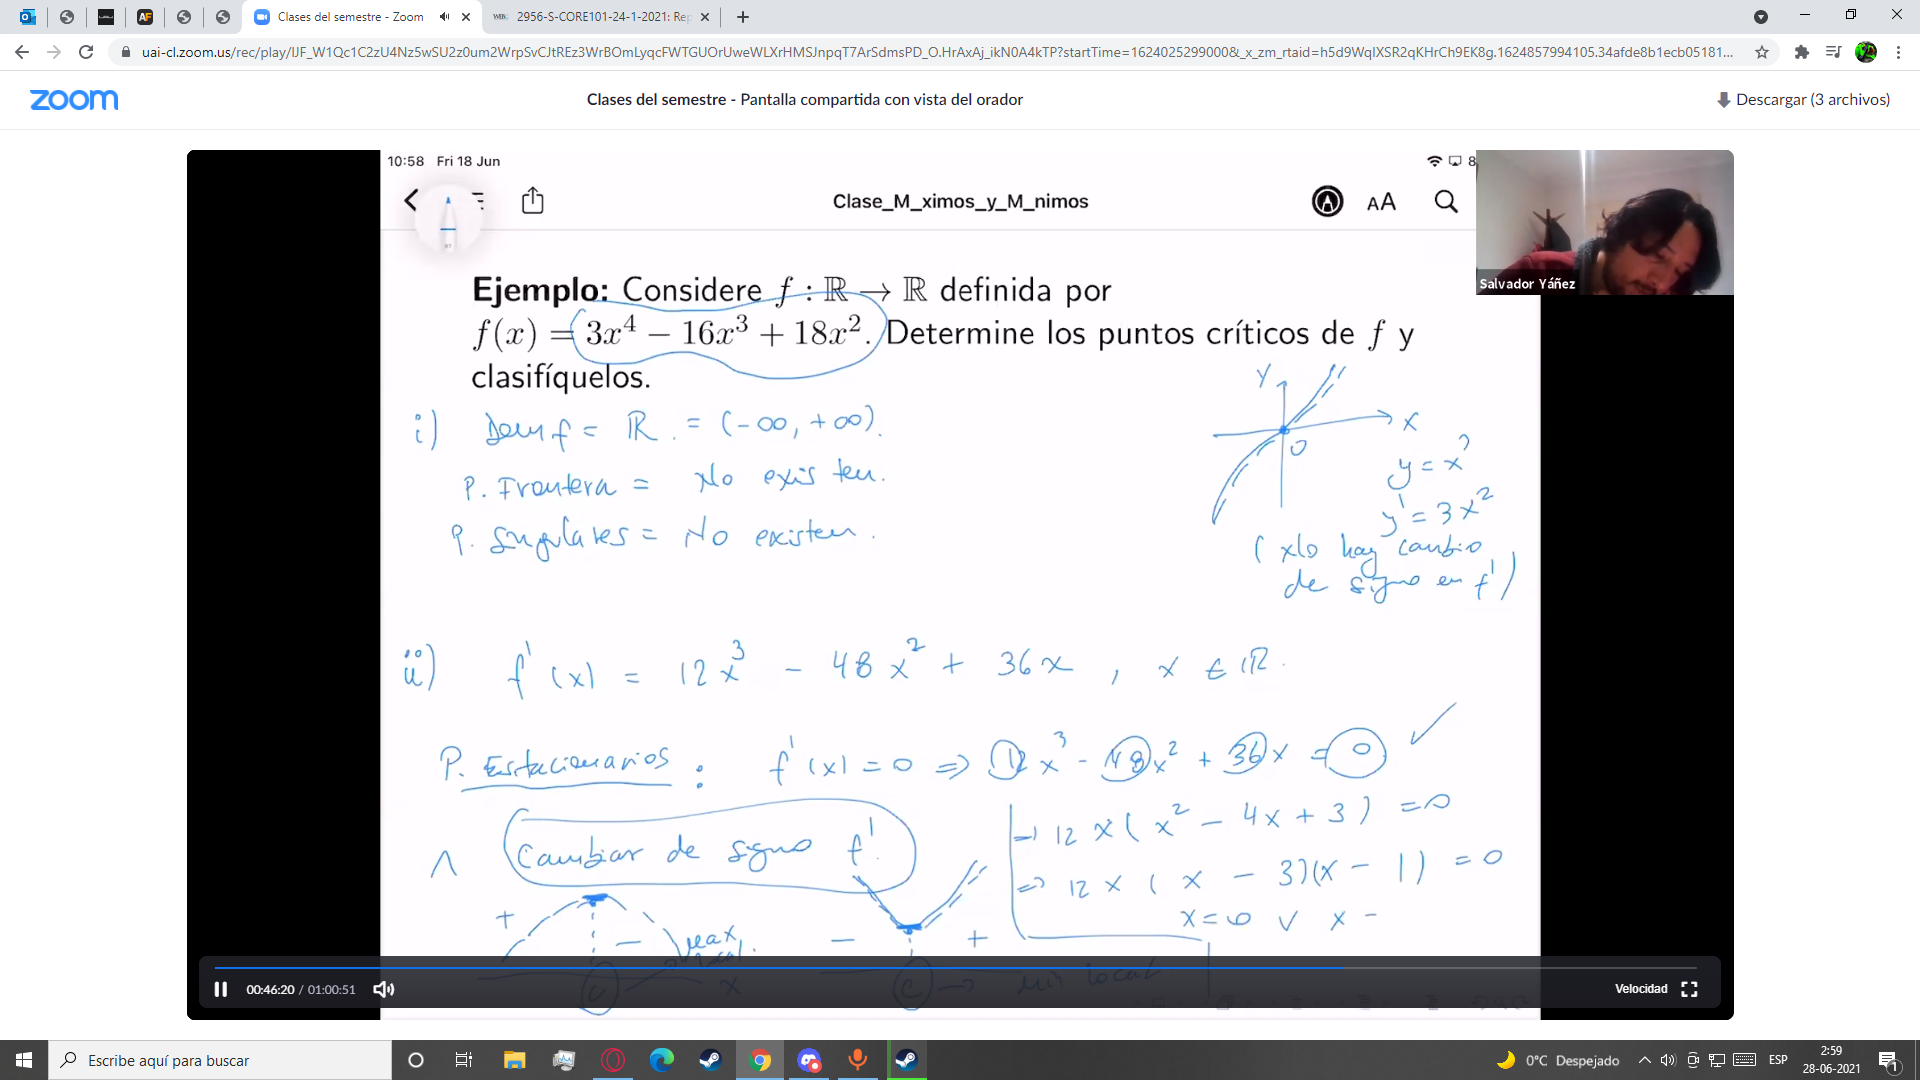 Clases del semestre - Zoom
2956-S-CORE101-24-1-2021: Rep
uai-cl.zoom.us/rec/play/IJF_W1Qc1C2zU4Nz5wSU2z0um2WrpSvCJtREz3WrBOmLyqcFWTGUOrUweWLXrHMSJnpqT7ArSdmsPD_O.HrAxAj_ikN0A4kTP?startTime=1624025299000&_x_zm_rtaid=h5d9WqIXSR2qKHrCh9EK8g.1624857994105.34afde8b1ecb05181...
zoom
Clases del semestre - Pantalla compartida con vista del orador
Descargar (3 archivos)
10:58 Fri 18 Jun
8
Clase_M_ximos_y_M_nimos
AA
Salvador Yáñez
Ejemplo: Considere f : ℝ → ℝ definida por
f(x) = 3x⁴ − 16x³ + 18x². Determine los puntos críticos de f y
clasifíquelos.
i) Dom f = ℝ. = (-∞, +∞).
P. Frontera = No existen.
P. Singulares = No existen.
Y
X
0
y = x³
y' = 3x²
( No hay cambio
de signo en f' )
ii) f'(x) = 12x³ - 48x² + 36x , x ∈ ℝ.
P. Estacionarios : f'(x) = 0 => 12x³ - 48x² + 36x = 0 ✓
=> 12x(x² - 4x + 3) = 0
∧ Cambiar de signo f'.
=> 12x(x - 3)(x - 1) = 0
x = 0 ∨ x =
+ - max local.
- +
c x
c → min local
00:46:20 / 01:00:51
Velocidad
Escribe aquí para buscar
0°C Despejado
ESP
2:59
28-06-2021
1